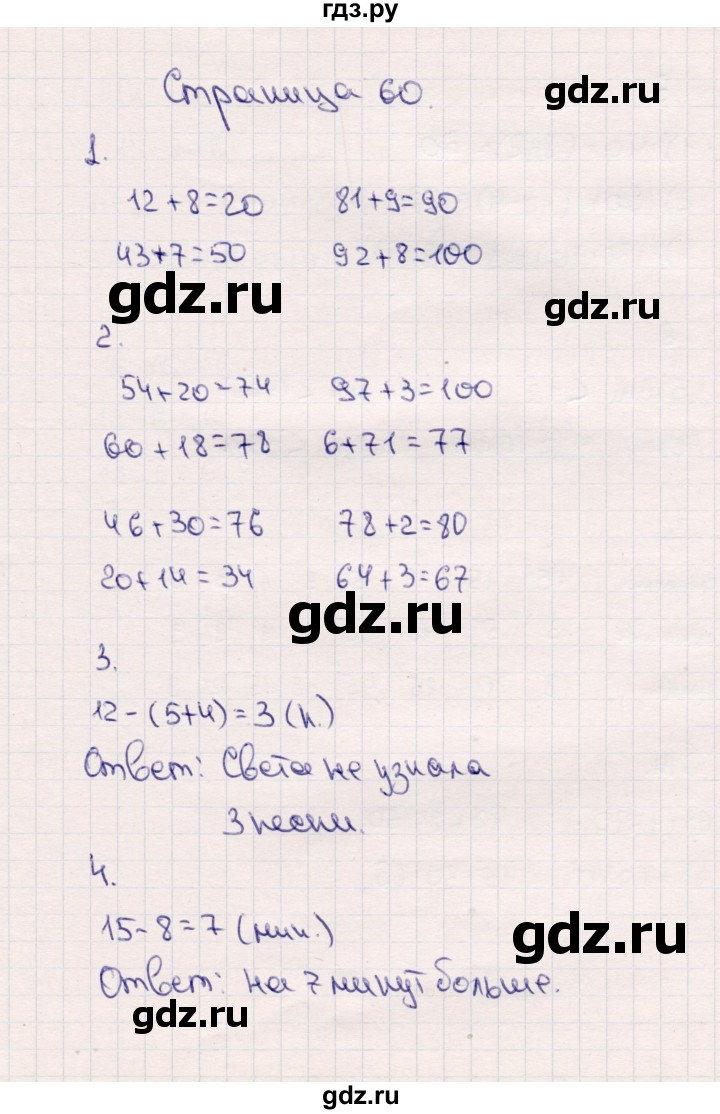 гдз.ру
Страница 60.
gdz.ru
1.
12+8=20 81+9=90
43+7=50 92+8=100
gdz.ru
gdz.ru
2.
54+20=74 97+3=100
60+18=78 6+71=77
46+30=76 78+2=80
20+14=34 64+3=67
gdz.ru
3.
12-(5+4)=3(п.)
Ответ: Света не узнала
3 песни.
4.
15-8=7 (мин.)
gdz.ru
Ответ: на 7 минут больше.
gdz.ru
gdz.ru